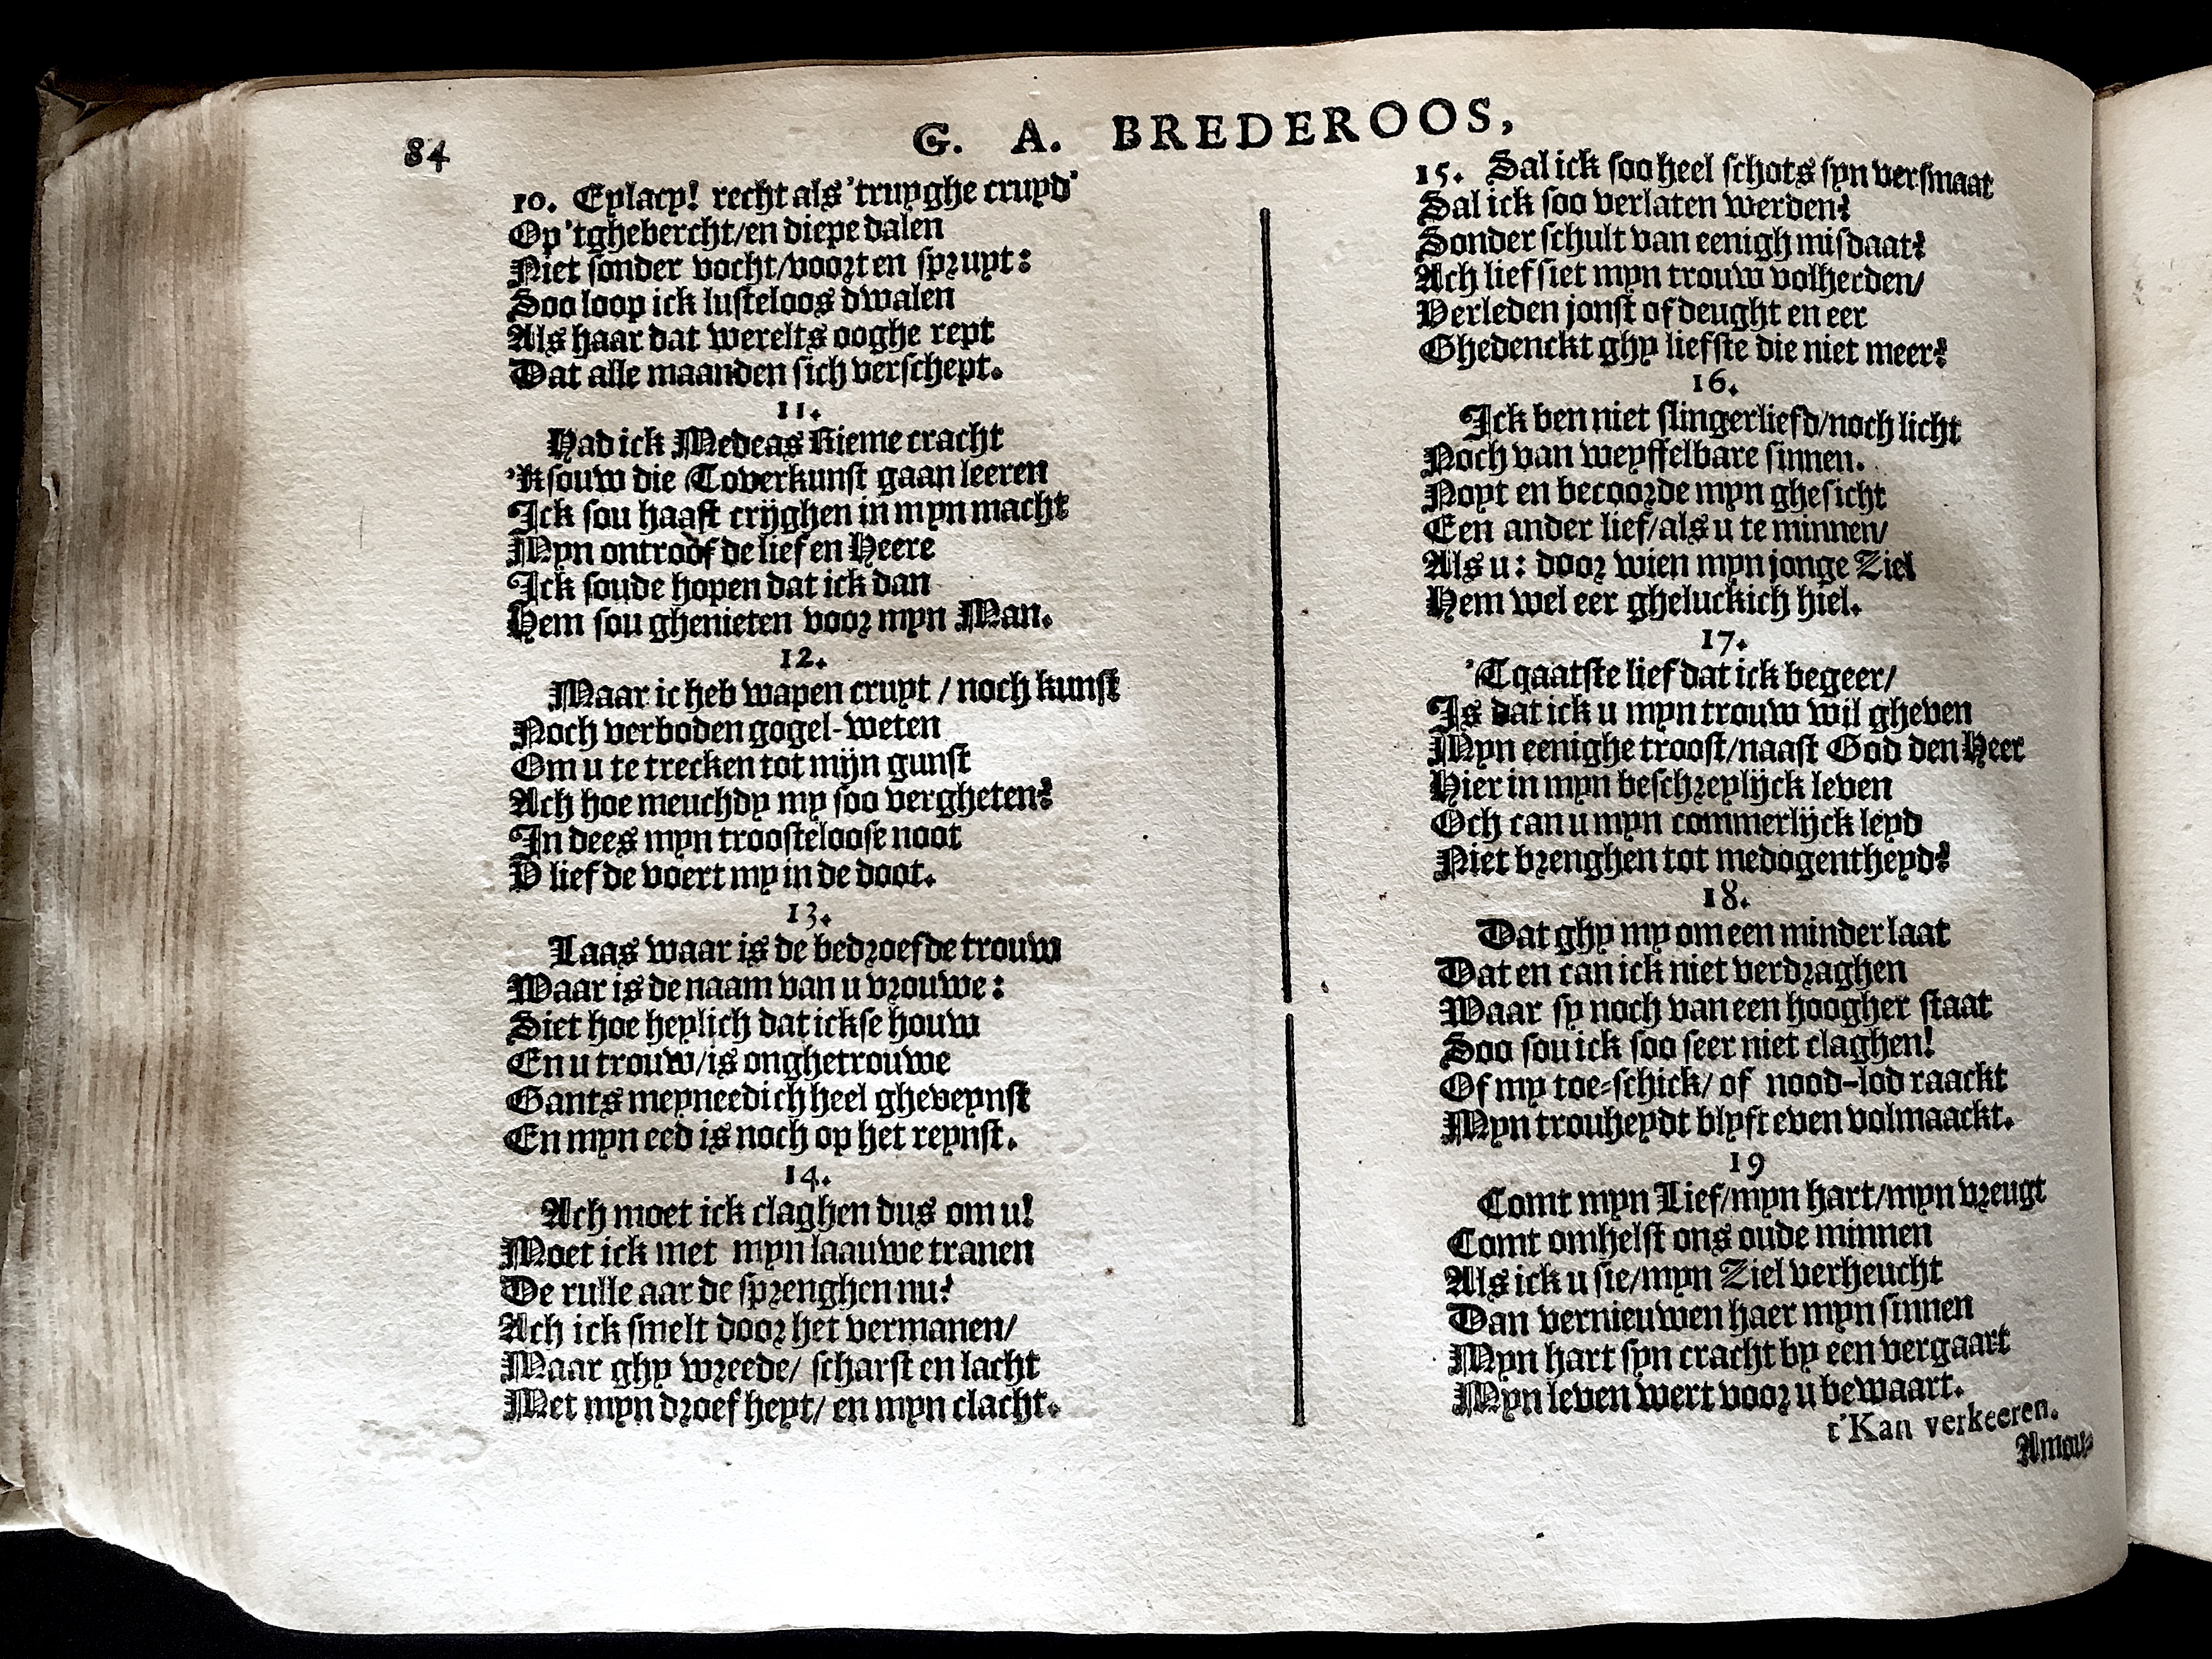 84
G. A. BREDEROOS,
10. Eylacy! recht als 'truyghe cruyd'
Op 'tghebercht/en diepe dalen
Niet sonder vocht/voort en spruyt:
Soo loop ick lusteloos dwalen
Als haar dat werelts ooghe rept
Dat alle maanden sich verschept.
11.
Had ick Medeas Rieme cracht
'Ksouw die Toverkunst gaan leeren
Ick sou haast crijghen in myn macht
Myn ontroofde lief en Heere
Ick soude hopen dat ick dan
Hem sou ghenieten voor myn Man.
12.
Maar ic heb wapen cruyt / noch kunst
Noch verboden gogel-weten
Om u te trecken tot mijn gunst
Ach hoe meuchdy my soo vergheten?
In dees myn troosteloose noot
U liefde voert my in de doot.
13.
Laas waar is de bedroefde trouw
Waar is de naam van u vrouwe:
Siet hoe heylich dat ickse houw
En u trouw/is onghetrouwe
Gants meyneedich heel gheveynst
En myn eed is noch op het reynst.
14.
Ach moet ick claghen dus om u!
Moet ick met myn laauwe tranen
De rulle aarde sprenghen nu?
Ach ick smelt door het vermanen/
Maar ghy wreede/ scharst en lacht
Met myn droefheyt/ en myn clacht.
15. Sal ick soo heel schots syn versmaat
Sal ick soo verlaten werden?
Sonder schult van eenigh misdaat?
Ach lief siet myn trouw volherden/
Verleden jonst of deught en eer
Ghedenckt ghy liefste die niet meer?
16.
Ick ben niet slingerliefd/noch licht
Noch van weyffelbare sinnen.
Noyt en becoorde myn ghesicht
Een ander lief/als u te minnen/
Als u: door wien myn jonge Ziel
Hem wel eer gheluckich hiel.
17.
'Tqaatste lief dat ick begeer/
Is dat ick u myn trouw wil gheven
Myn eenighe troost/naast God den Heer
Hier in myn beschreylijck leven
Och can u myn commerlijck leyd
Niet brenghen tot medogentheyd?
18.
Dat ghy my om een minder laat
Dat en can ick niet verdraghen
Waar sy noch van een hoogher staat
Soo sou ick soo seer niet claghen!
Of my toe-schick/ of nood-lod raackt
Myn trouheydt blyft even volmaackt.
19
Comt myn Lief/myn hart/myn vreugt
Comt omhelst ons oude minnen
Als ick u sie/myn Ziel verheucht
Dan vernieuwen haer myn sinnen
Myn hart syn cracht by een vergaart
Myn leven wert voor u bewaart.
t'Kan verkeeren.
Amou-